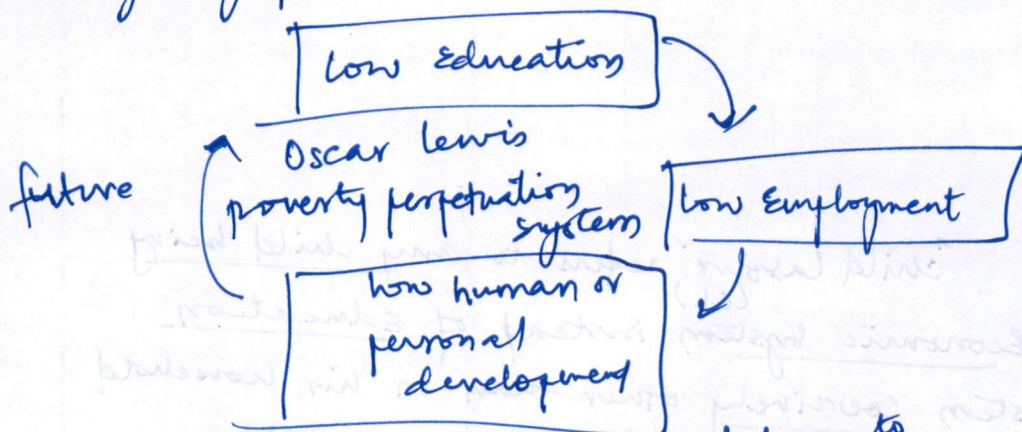 Low Education
Oscar lewis
future
poverty perpetuation
system
Low Employment
Low human or
personal
development
to